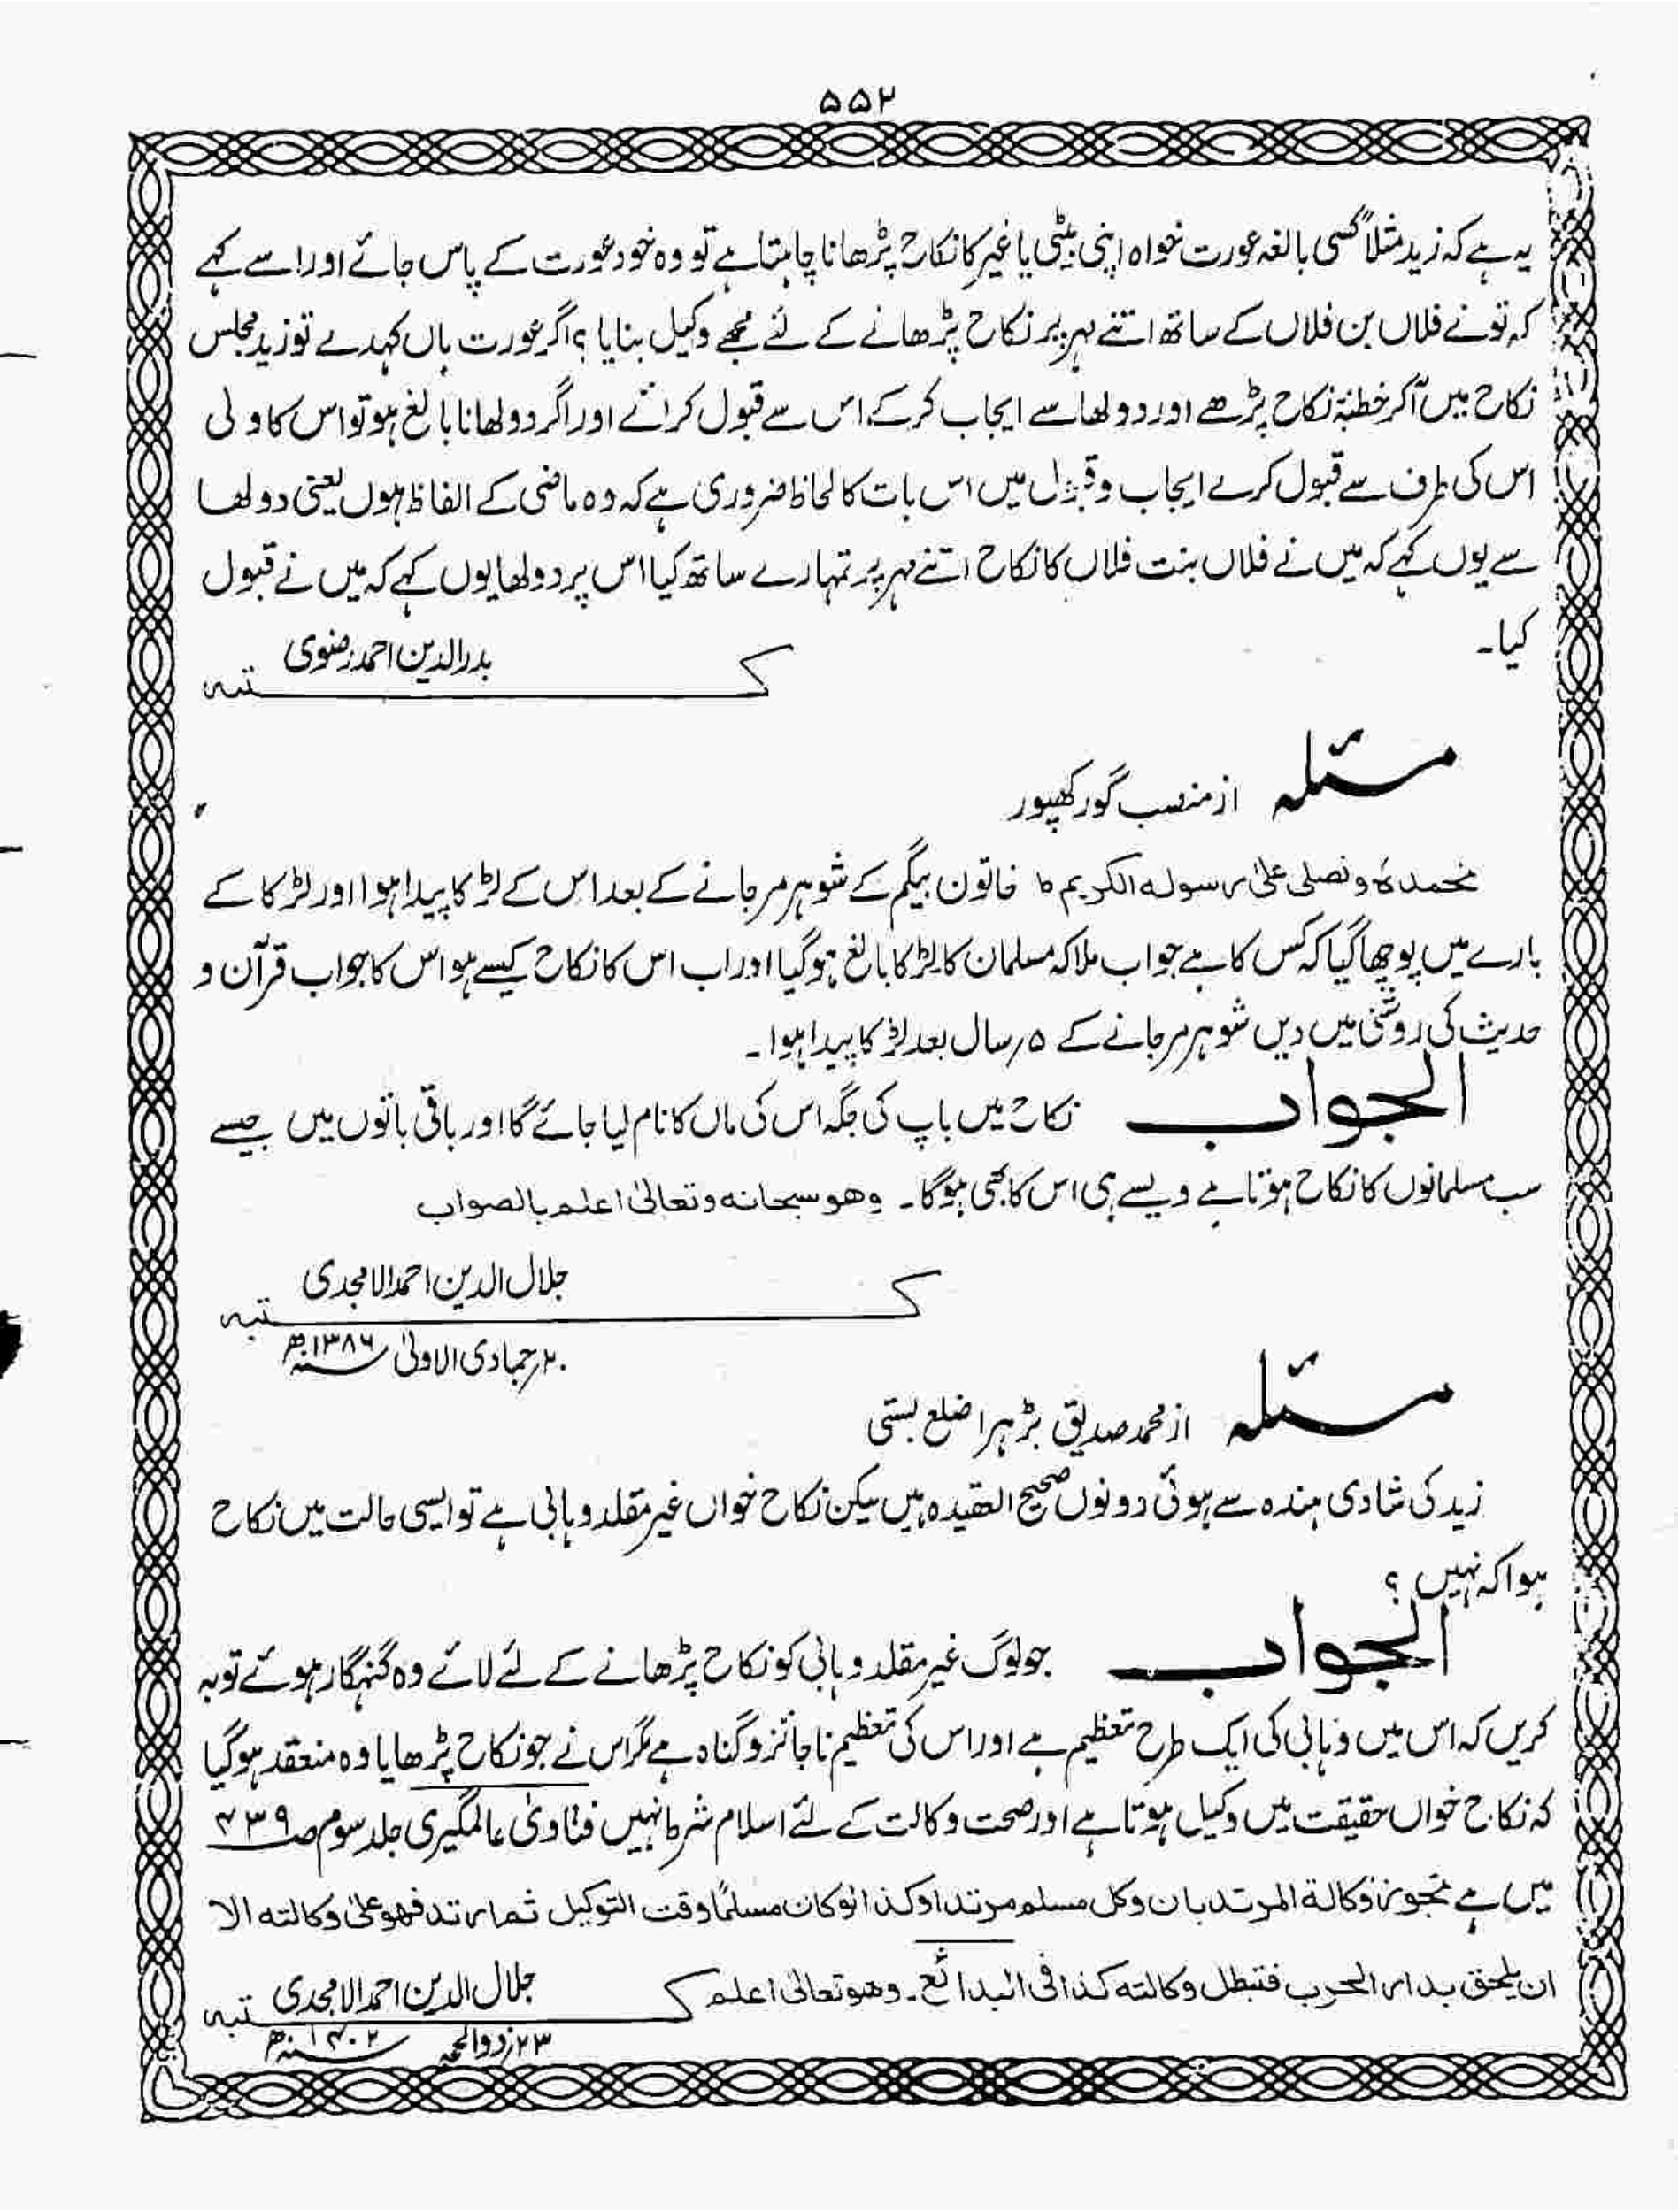 ۵۵۲
یہ ہے کہ زید مثلاً کسی بالغہ عورت خواہ اپنی بیٹی یا غیر کا نکاح پڑھانا چاہتا ہے تو وہ خود عورت کے پاس جائے اور اسے کہے
کہ تو نے فلاں بن فلاں کے ساتھ اتنے مہر پر نکاح پڑھانے کے لئے مجھے وکیل بنایا ؟ اگر عورت ہاں کہدے تو زید مجلس
نکاح میں آکر خطبۂ نکاح پڑھے اور دولھا سے ایجاب کرکے اس سے قبول کرائے اور اگر دولھا نابالغ ہو تو اس کا ولی
اس کی طرف سے قبول کرے ایجاب و قبول میں اس بات کا لحاظ ضروری ہے کہ وہ ماضی کے الفاظ ہوں یعنی دولھا
سے یوں کہے کہ میں نے فلاں بنت فلاں کا نکاح اتنے مہر پر تمہارے ساتھ کیا اس پر دولھا یوں کہے کہ میں نے قبول
کیا۔
کتبہ بدرالدین احمد رضوی
مسئلہ از منصب گورکھپور
نحمدہٗ و نصلی علیٰ رسولہ الکریم ط خاتون بیگم کے شوہر مرجانے کے بعد اس کے لڑکا پیدا ہوا اور لڑکا کے
بارے میں پوچھا گیا کہ کس کا ہے جواب ملا کہ مسلمان کا لڑکا بالغ ہوگیا اور اب اس کا نکاح کیسے ہو اس کا جواب قرآن و
حدیث کی روشنی میں دیں شوہر مرجانے کے ۵؍ سال بعد لڑکا پیدا ہوا۔
الجواب نکاح میں باپ کی جگہ اس کی ماں کا نام لیا جائے گا اور باقی باتوں میں جیسے
سب مسلمانوں کا نکاح ہوتا ہے ویسے ہی اس کا بھی ہوگا۔ وھو سبحانہ و تعالیٰ اعلم بالصواب
کتبہ جلال الدین احمد الامجدی
۲۰؍ جمادی الاولیٰ ۱۳۸۶ھ
مسئلہ از محمد صدیق بڑہرا ضلع بستی
زید کی شادی ہندہ سے ہوئی دونوں صحیح العقیدہ ہیں لیکن نکاح خواں غیر مقلد وہابی ہے تو ایسی حالت میں نکاح
ہوا کہ نہیں ؟
الجواب جو لوگ غیر مقلد وہابی کو نکاح پڑھانے کے لئے لائے وہ گنہگار ہوئے توبہ
کریں کہ اس میں وہابی کی ایک طرح تعظیم ہے اور اس کی تعظیم ناجائز و گناہ ہے مگر اس نے جو نکاح پڑھایا وہ منعقد ہوگیا
کہ نکاح خواں حقیقت میں وکیل ہوتا ہے اور صحت وکالت کے لئے اسلام شرط نہیں فتاویٰ عالمگیری جلد سوم ص ۴۳۹
میں ہے تجوز وکالۃ المرتد بان وکل مسلم مرتدا وکذا لوکان مسلمًا وقت التوکیل ثم ارتد فھو علیٰ وکالتہ الا
ان یلحق بدار الحرب فتبطل وکالتہ کذا فی البدائع۔ وھو تعالیٰ اعلم
کتبہ جلال الدین احمد الامجدی
۲۳؍ ذوالحجہ ۱۴۰۲ھ